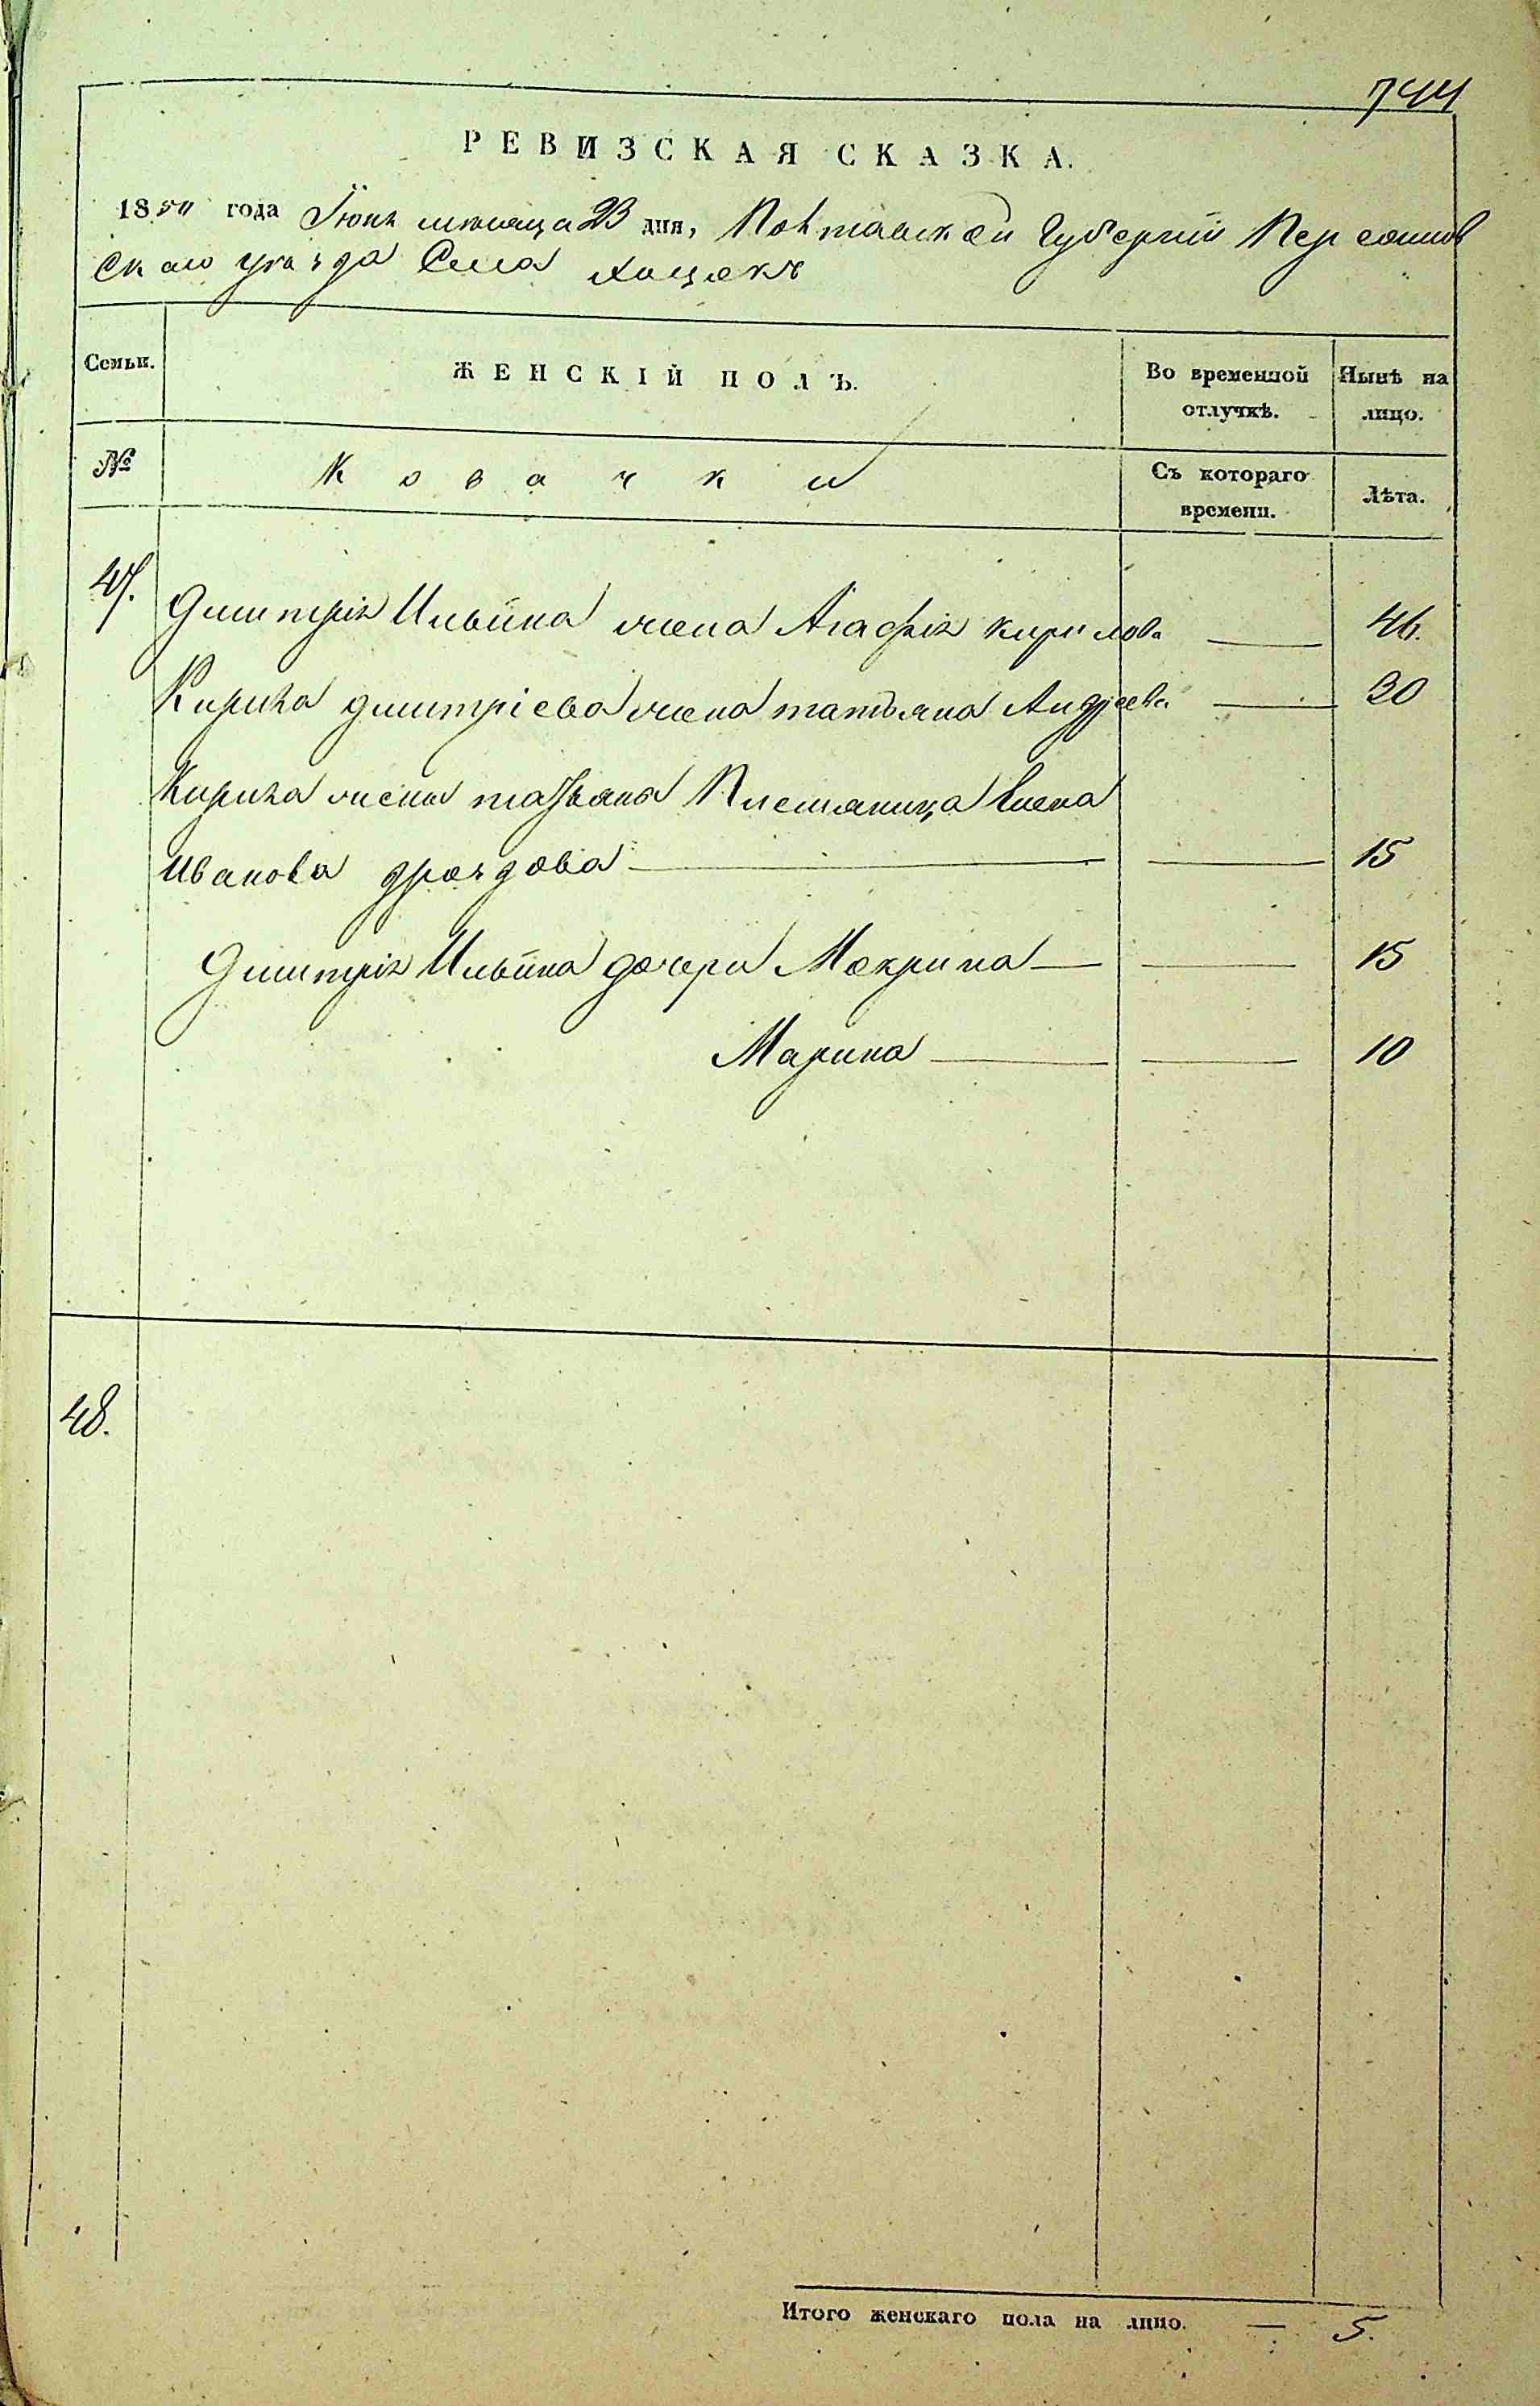 744
РЕВИЗСКАЯ СКАЗКА.
1850 года Іюня месяца 23 дня, Полтавской Губерніи Переяслав
скаго уезда Села Хоцекъ
Семьи. ЖЕНСКІЙ ПОЛЪ. Во временной отлучкѣ. Нынѣ на лицо.
№ Козачки Съ котораго времени. Лѣта.
47. Дмитрія Ильина жена Агафія Кирилова — 46.
Кирила Дмитріева жена татьяна Андреева — 20
Кирила жены татьяны Племяница Елена
Иванова дроздова — — 15
Дмитрія Ильина дочери Мокрина — — 15
Марина — — 10
48.
Итого женскаго пола на лицо. — 5.